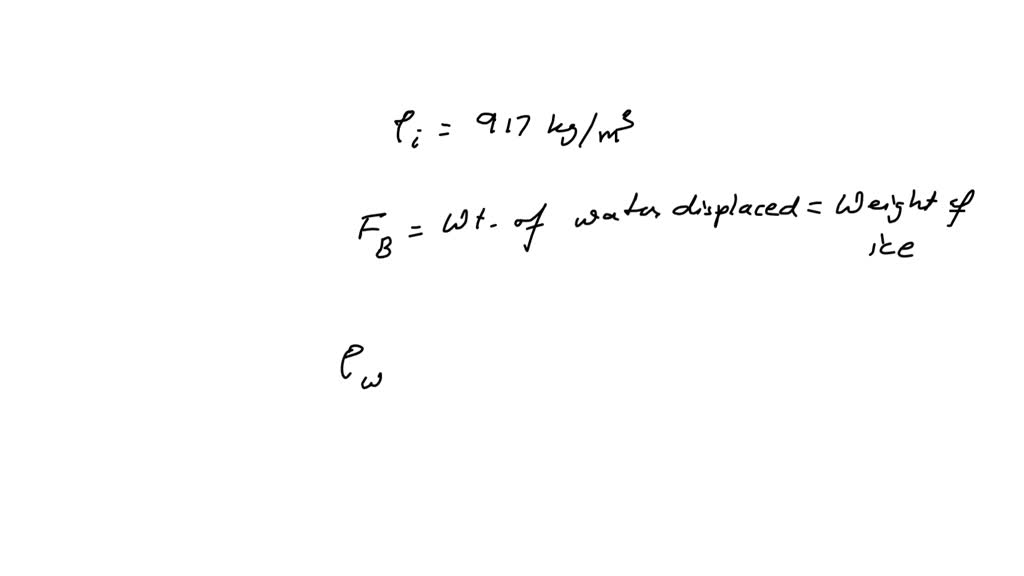 ρi = 917 kg/m³
FB = Wt. of water displaced = Weight of
ice
ρw